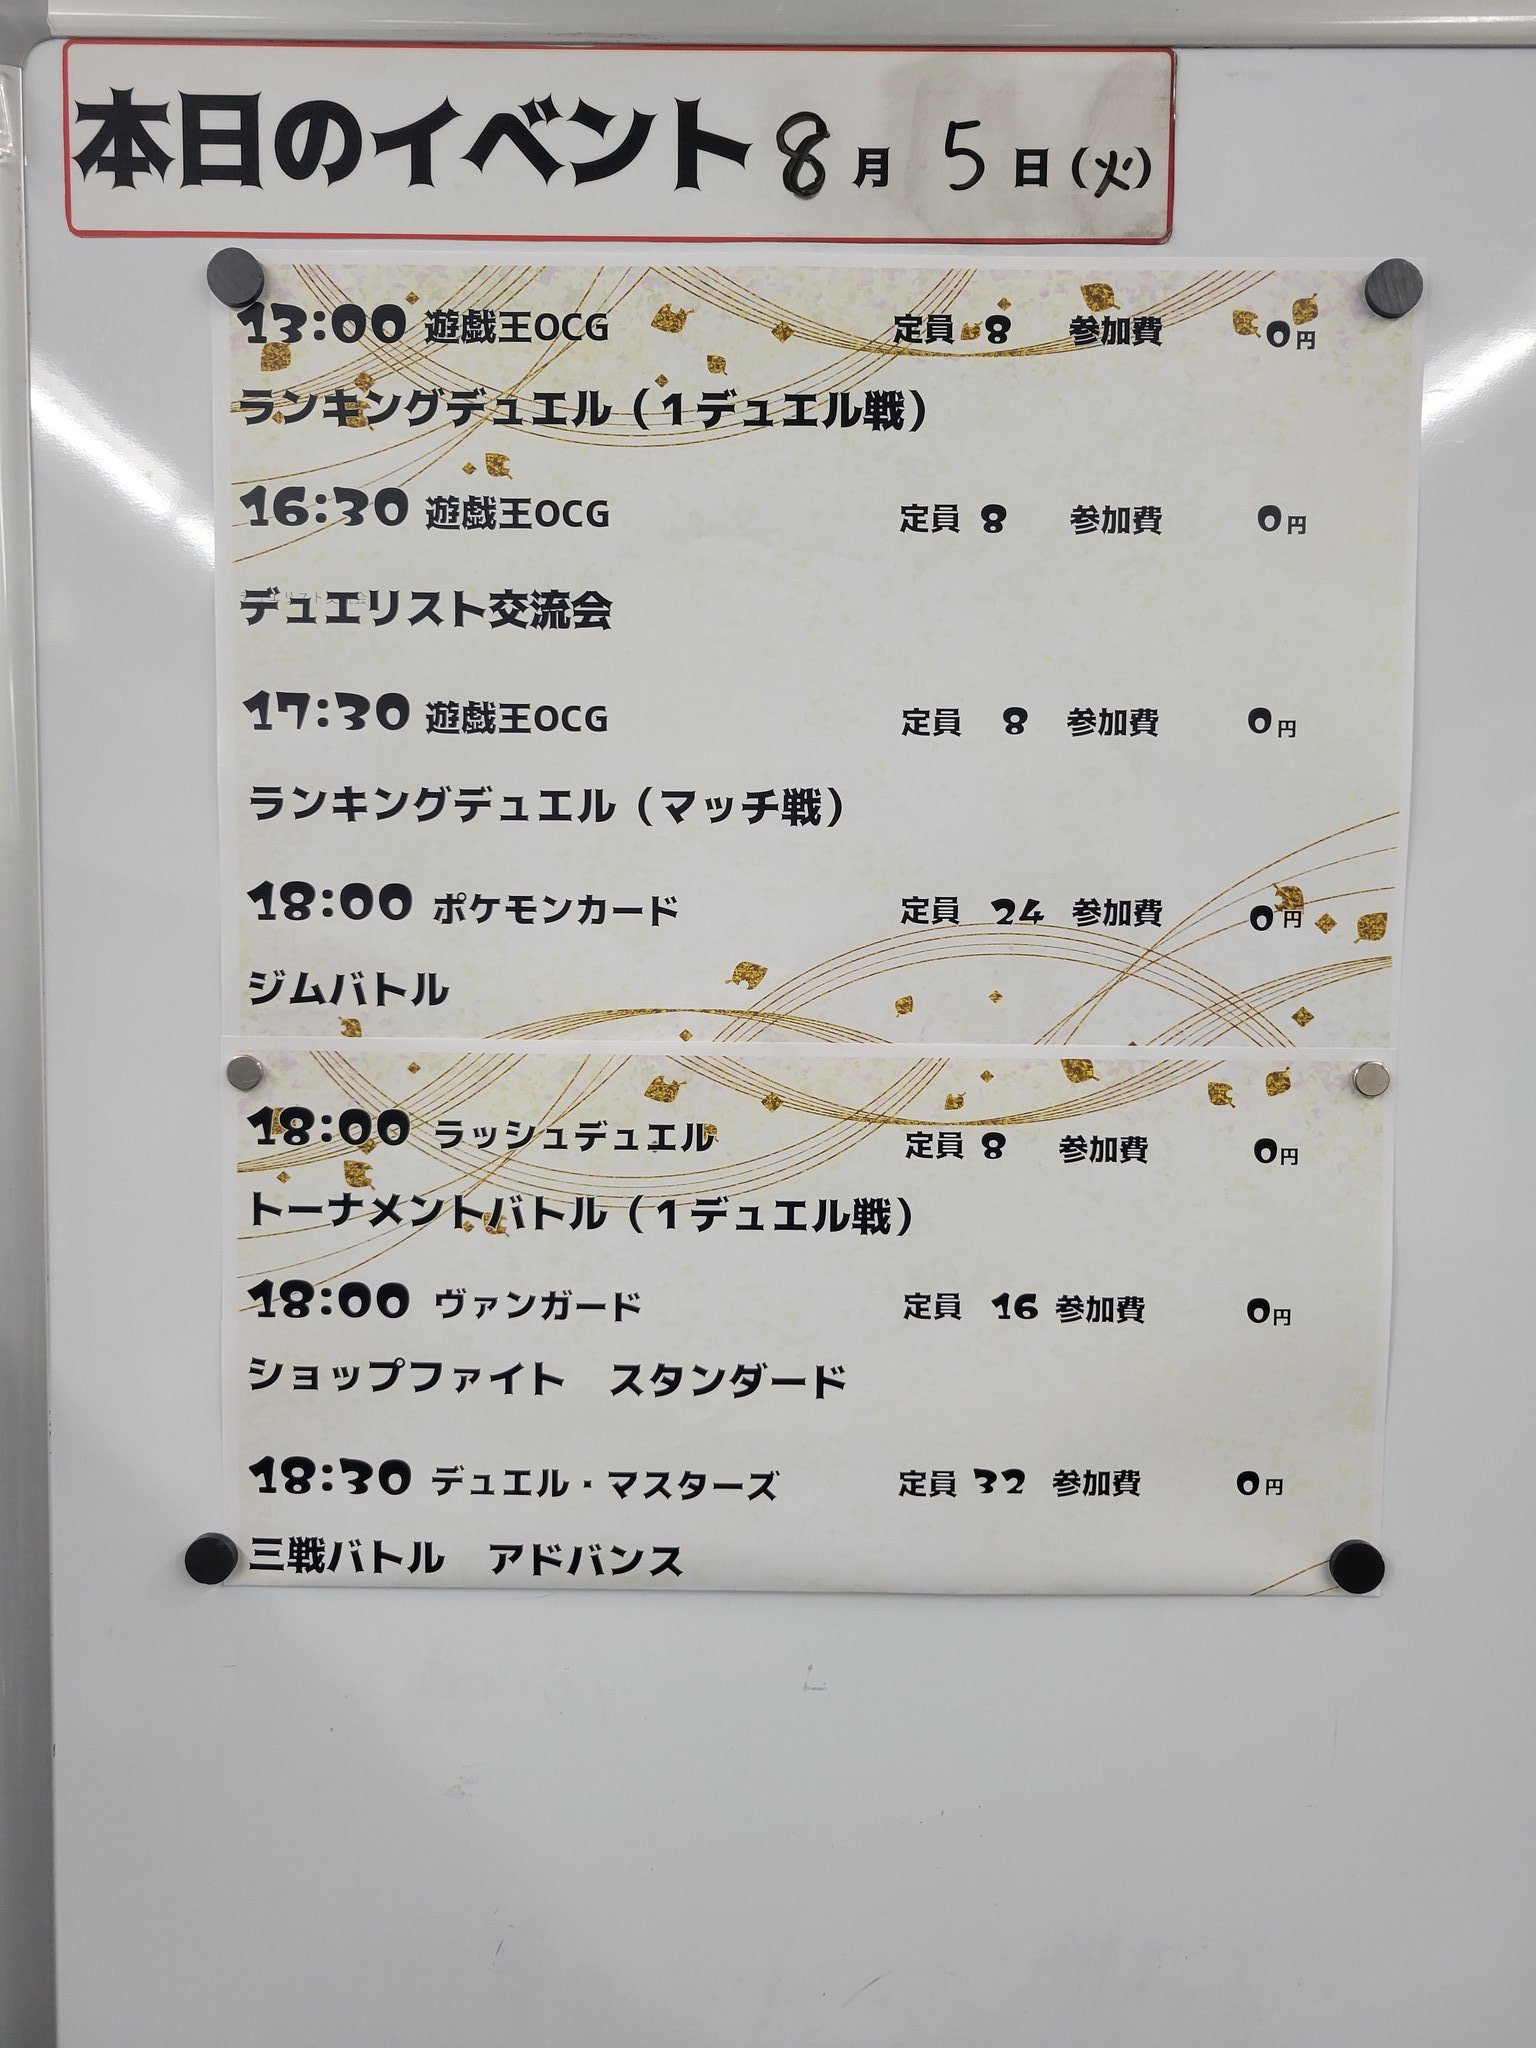 本日のイベント 8月 5日(火)
13:00 遊戯王OCG 定員 8 参加費 0円
ランキングデュエル（1デュエル戦）
16:30 遊戯王OCG 定員 8 参加費 0円
デュエリスト交流会
17:30 遊戯王OCG 定員 8 参加費 0円
ランキングデュエル（マッチ戦）
18:00 ポケモンカード 定員 24 参加費 0円
ジムバトル
18:00 ラッシュデュエル 定員 8 参加費 0円
トーナメントバトル（1デュエル戦）
18:00 ヴァンガード 定員 16 参加費 0円
ショップファイト　スタンダード
18:30 デュエル・マスターズ 定員 32 参加費 0円
三戦バトル　アドバンス